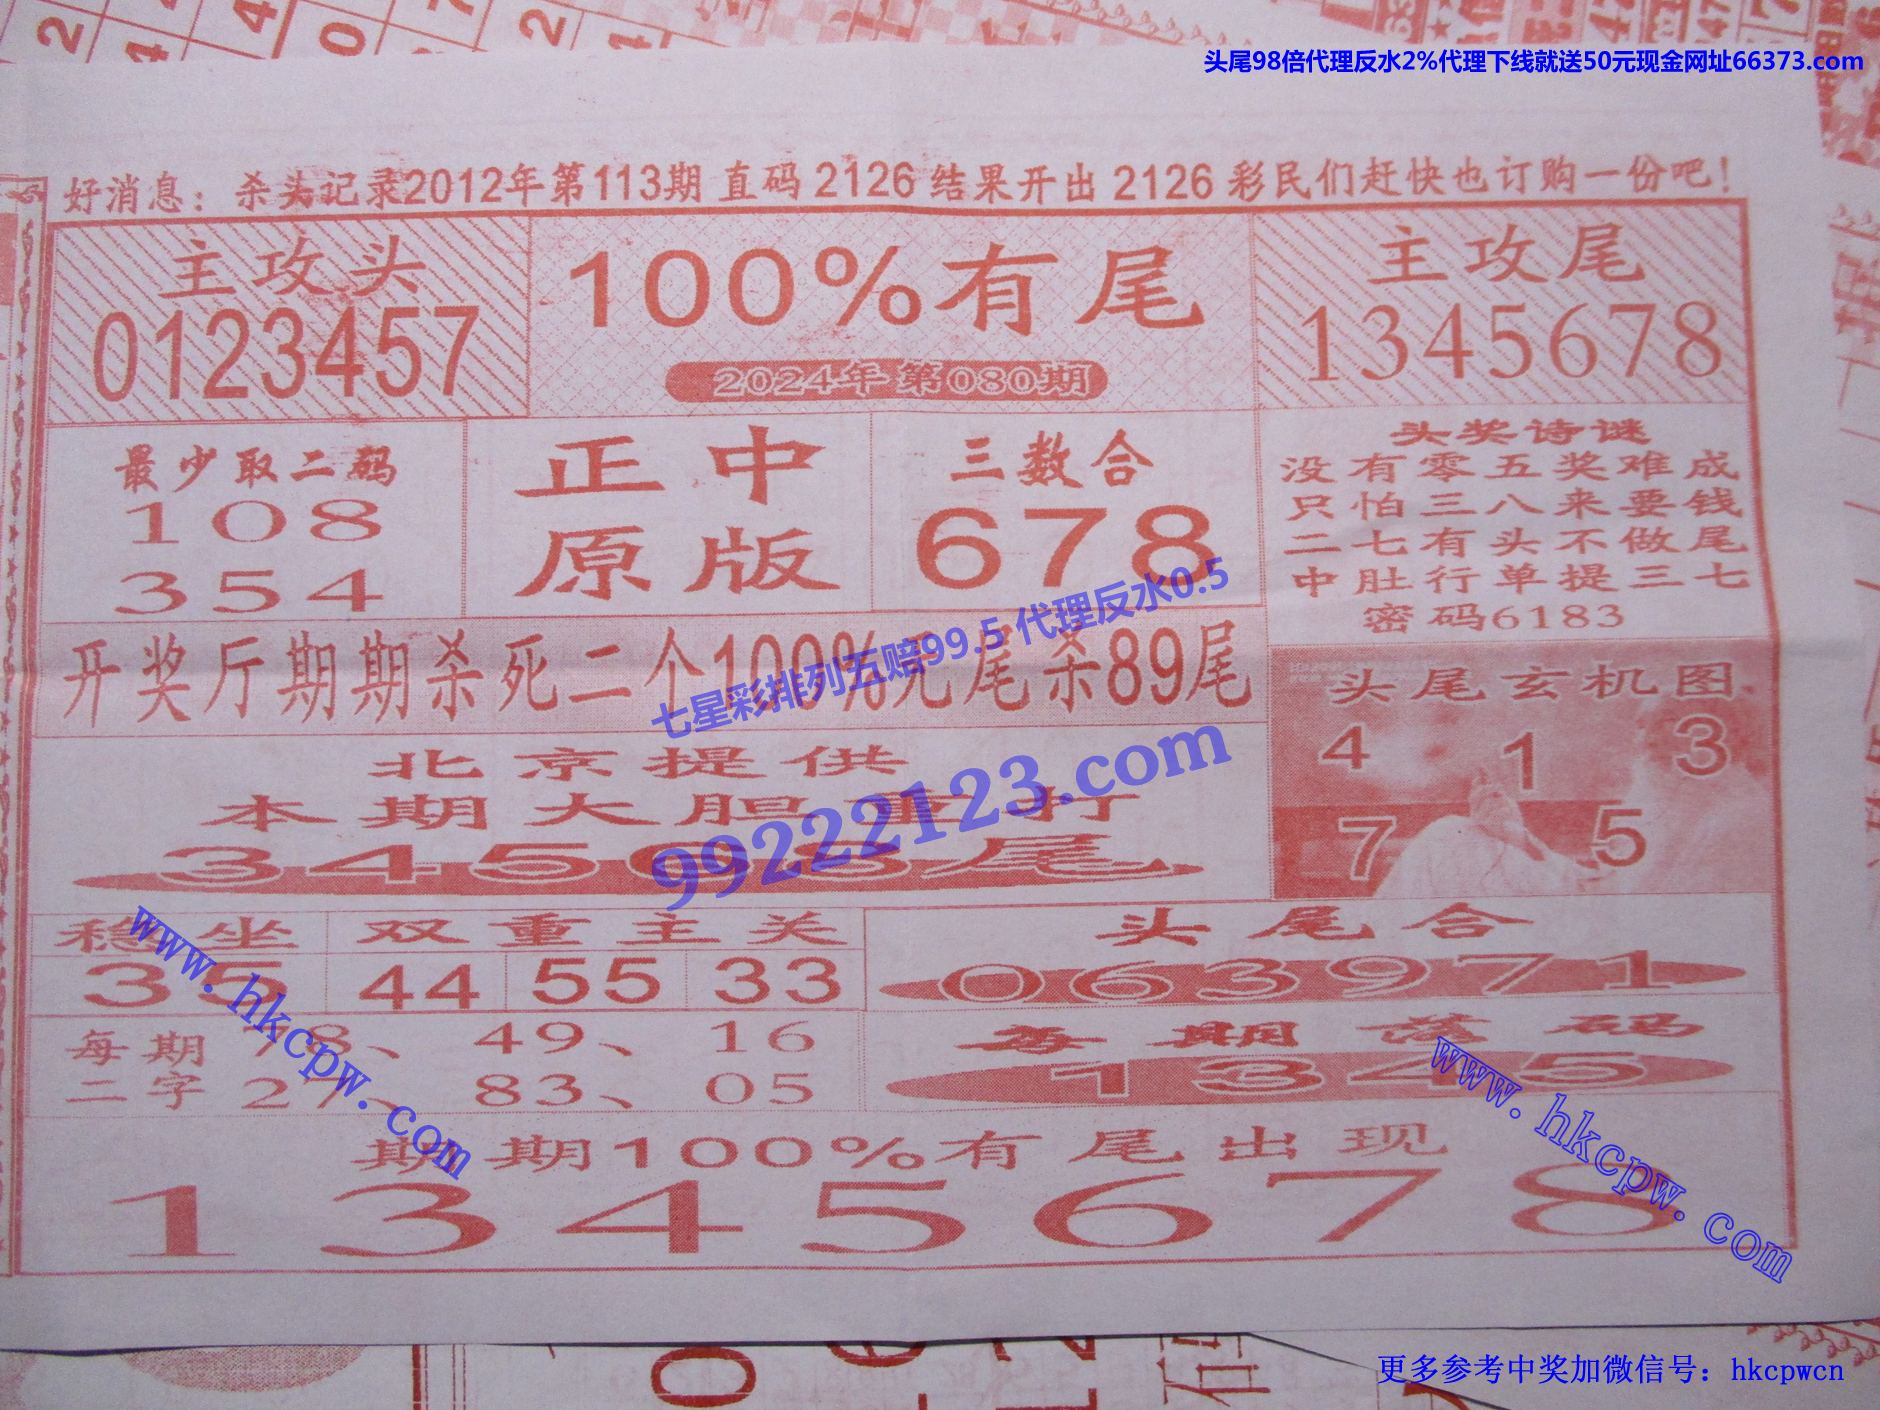 头尾98倍代理反水2%代理下线就送50元现金网址66373.com
好消息：杀头记录2012年第113期 直码 2126 结果开出 2126 彩民们赶快也订购一份吧！
主攻头
0123457
100%有尾
2024年第080期
主攻尾
1345678
最少取二码
108
354
正中
原版
三数合
678
头奖诗谜
没有零五奖难成
只怕三八来要钱
二七有头不做尾
中肚行单提三七
密码6183
开奖厅期期杀死二个100%无尾杀89尾
七星彩排列五赔99.5 代理反水0.5
99222123.com
头尾玄机图
4 1 3
7 5
北京提供
本期大胆重打
34568尾
稳坐
35
双重主关
44 55 33
头尾合
063971
每期二字
78、49、16
27、83、05
每期落码
1345
www.hkcpw.com
www.hkcpw.com
期期100%有尾出现
1345678
更多参考中奖加微信号：hkcpwcn